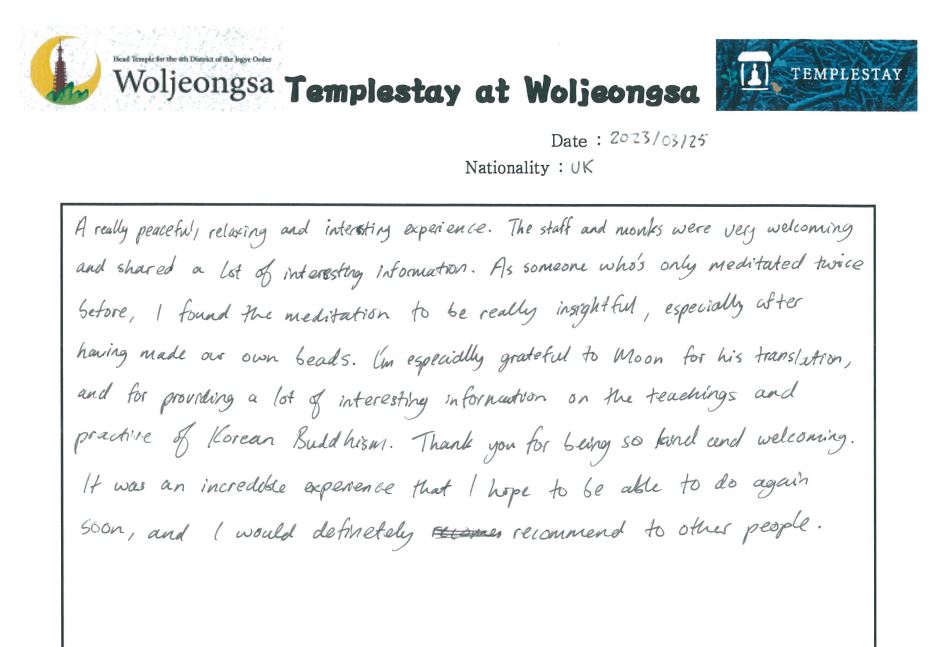 Head Temple for the 4th District of the Jogye Order
Woljeongsa
Templestay at Woljeongsa
TEMPLESTAY
Date : 2023/03/25
Nationality : UK
A really peaceful, relaxing and interesting experience. The staff and monks were very welcoming
and shared a lot of interesting information. As someone who's only meditated twice
before, I found the meditation to be really insightful, especially after
having made our own beads. I'm especially grateful to Moon for his translation,
and for providing a lot of interesting information on the teachings and
practise of Korean Buddhism. Thank you for being so kind and welcoming.
It was an incredible experience that I hope to be able to do again
soon, and I would definetely recommend to other people.